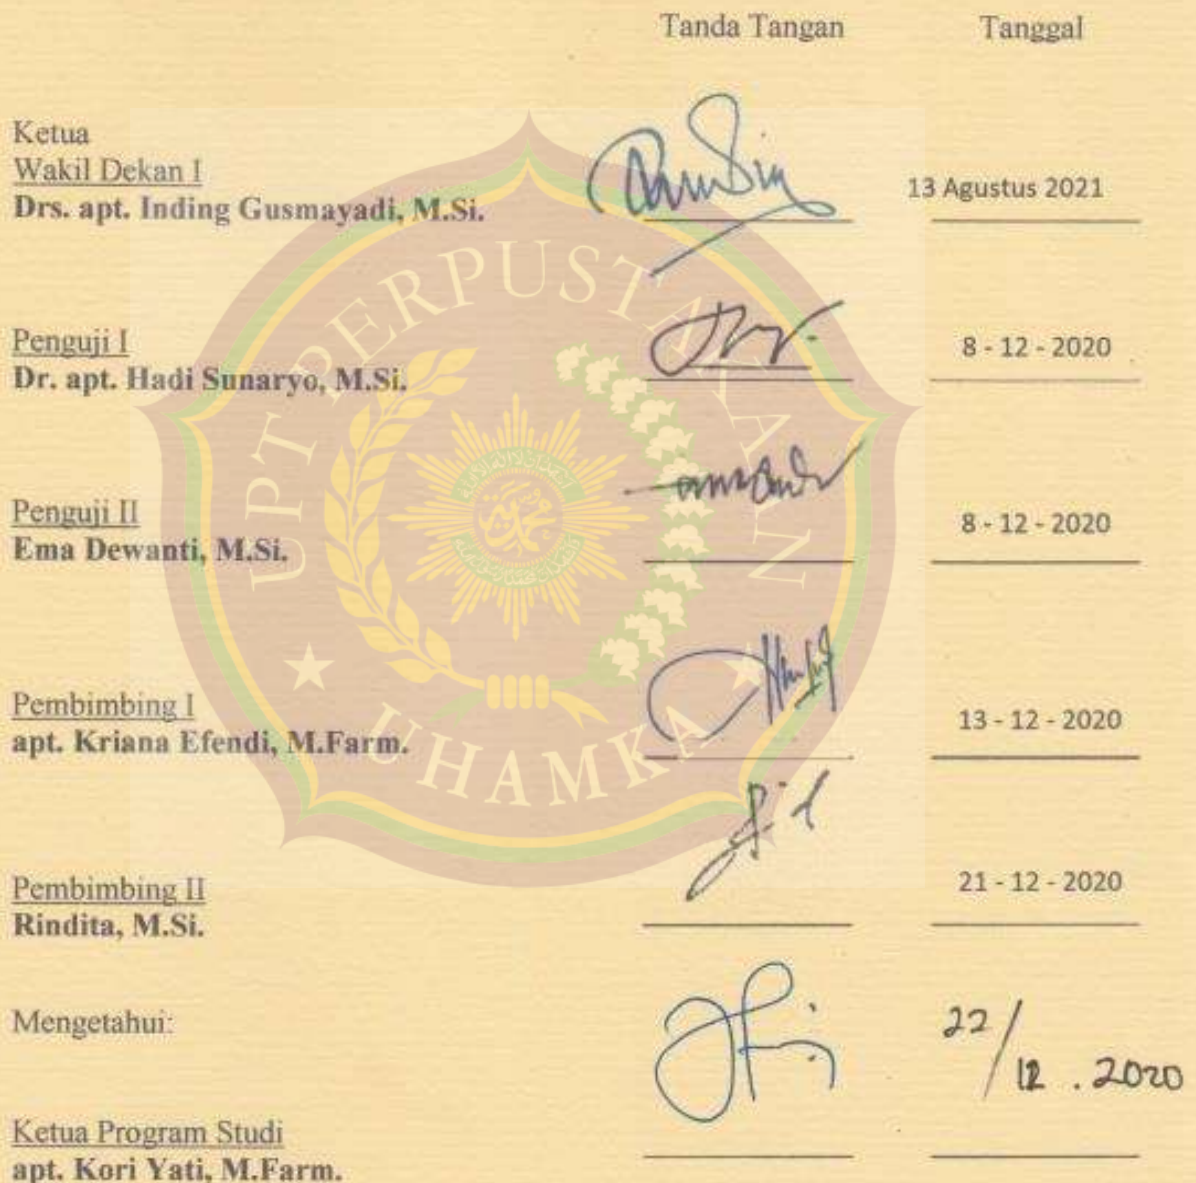 Tanda Tangan Tanggal
Ketua
Wakil Dekan I
Drs. apt. Inding Gusmayadi, M.Si.
13 Agustus 2021
Penguji I
Dr. apt. Hadi Sunaryo, M.Si.
8 - 12 - 2020
Penguji II
Ema Dewanti, M.Si.
8 - 12 - 2020
Pembimbing I
apt. Kriana Efendi, M.Farm.
13 - 12 - 2020
Pembimbing II
Rindita, M.Si.
21 - 12 - 2020
Mengetahui:
22/12 . 2020
Ketua Program Studi
apt. Kori Yati, M.Farm.
UPT PERPUSTAKAAN
UHAMKA